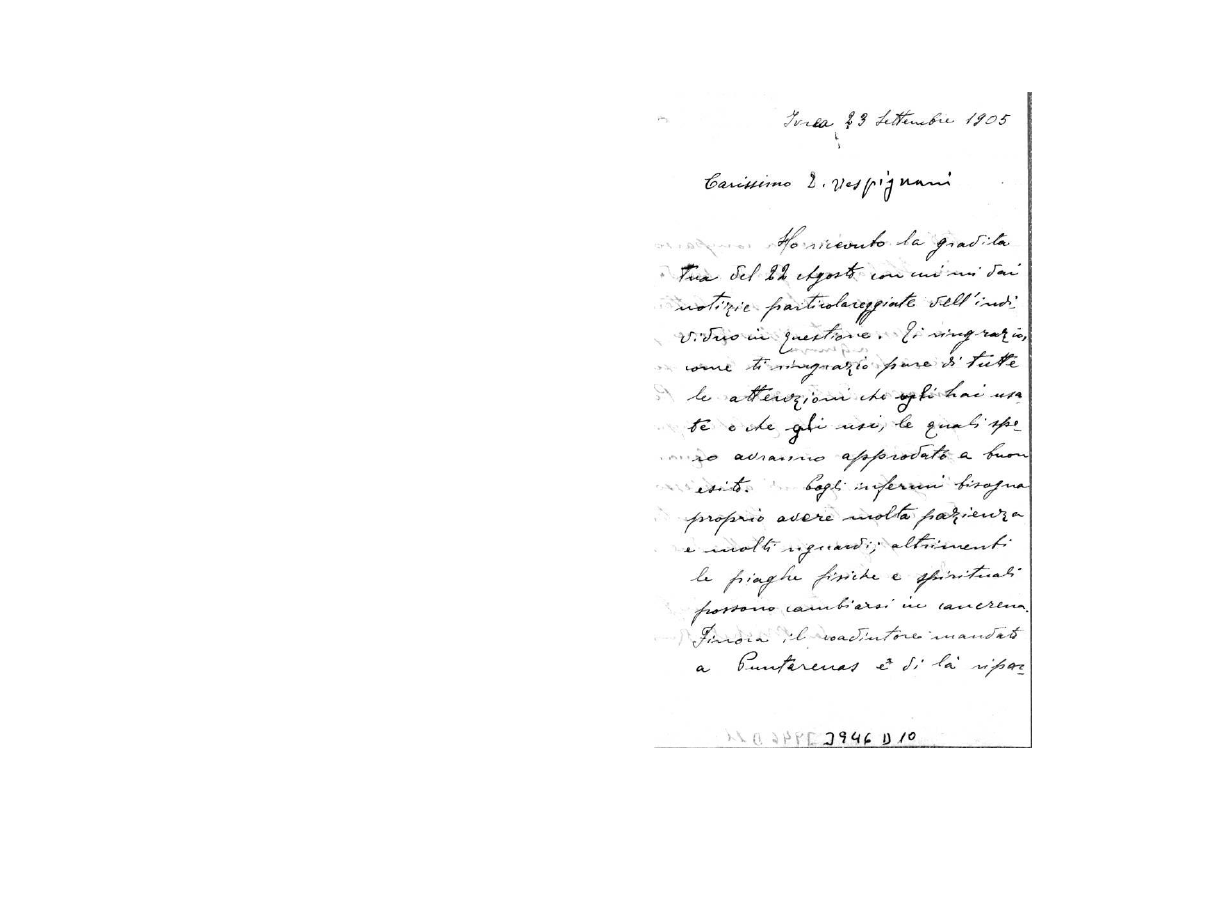 Ivrea 23 Settembre 1905
Carissimo D. Vespignani
Ho ricevuto la gradita
tua del 22 Agosto con cui mi dai
notizie particolareggiate dell'indi-
viduo in questione. Ti ringrazio,
come ti ringrazio pure di tutte
le attenzioni che gli hai usa-
te e che gli usi, le quali spe=
ro avranno approdato a buon
esito. Cogli infermi bisogna
proprio avere molta pazienza
e molti riguardi; altrimenti
le piaghe fisiche e spirituali
possono cambiarsi in cancrena.
Finora il coadiutore mandato
a Puntarenas e di là ripar=
3946 D 10